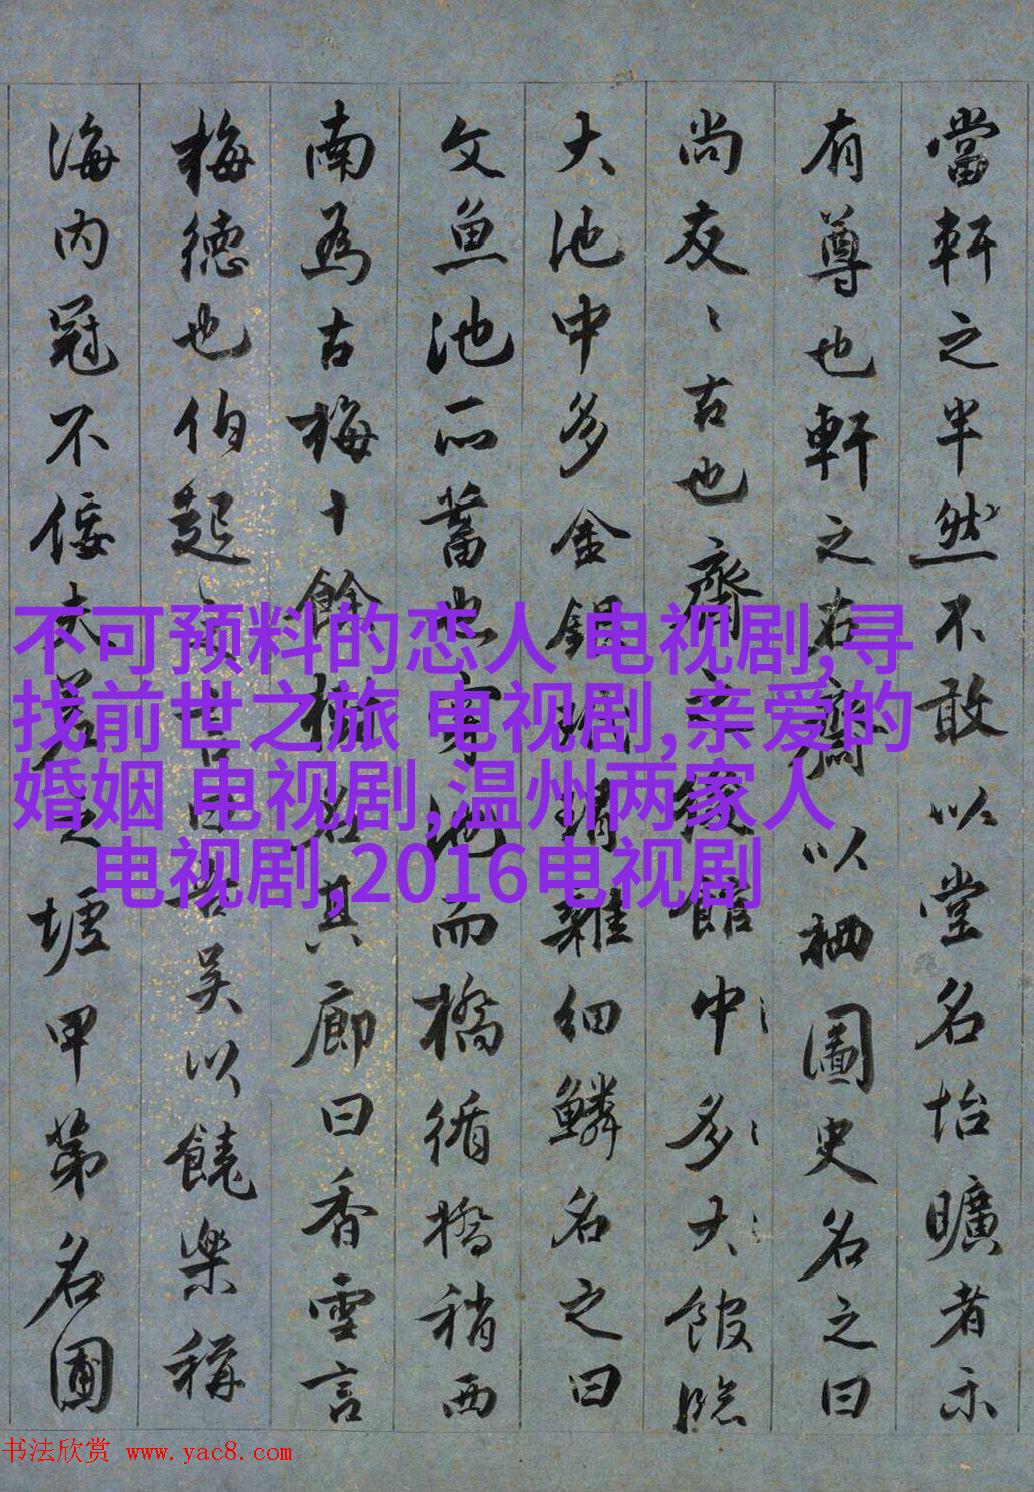 當軒之半然不敢以堂名怡曠者示
有尊也軒之右齋以栖圖史名之曰
尚友〻古也齋之後館中〻多〻大〻館臨
大池中多金銀玳瑁雜細鱗名之曰
文魚池一所蓄也穿池而橋循橋稍西
南為古梅十餘樹在其廊曰香雪言
梅德也伯起吳以饒樂稱
海内冠不佞夫差之墟甲第名圃
不可预料的恋人 电视剧,寻
找前世之旅 电视剧,亲爱的
婚姻 电视剧,温州两家人
电视剧,2016电视剧
书法欣赏 www.yac8.com